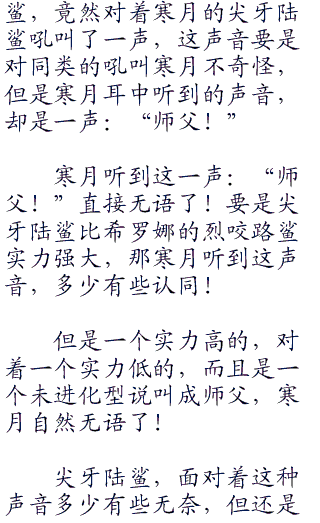 鲨，竟然对着寒月的尖牙陆
鲨吼叫了一声，这声音要是
对同类的吼叫寒月不奇怪，
但是寒月耳中听到的声音，
却是一声：“师父！”
寒月听到这一声：“师
父！”直接无语了！要是尖
牙陆鲨比希罗娜的烈咬路鲨
实力强大，那寒月听到这声
音，多少有些认同！
但是一个实力高的，对
着一个实力低的，而且是一
个未进化型说叫成师父，寒
月自然无语了！
尖牙陆鲨，面对着这种
声音多少有些无奈，但还是